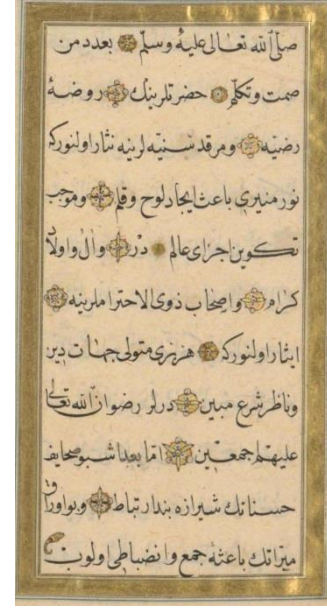 صلّى الله تعالى عليه وسلّم بعدد من
صمت وتكلّم حضرتلرينك روضهٔ
رضيّه ومرقد سنيّه لرينه نثار اولنوركه
نور منيرى باعث ايجاد لوح وقلم وموجب
تكوين اجزاى عالم در وآل واولاد
كرام واصحاب ذوى الاحتراملرينه
ايثار اولنوركه هر برى متولى جهات دين
وناظر شرع مبين درلر رضوان الله تعالى
عليهم اجمعين امّا بعد اشبو صحايف
حسناتك شيرازه بند ارتباط وبو اوراق
مبراتك باعثهٔ جمع وانضباطى اولوب